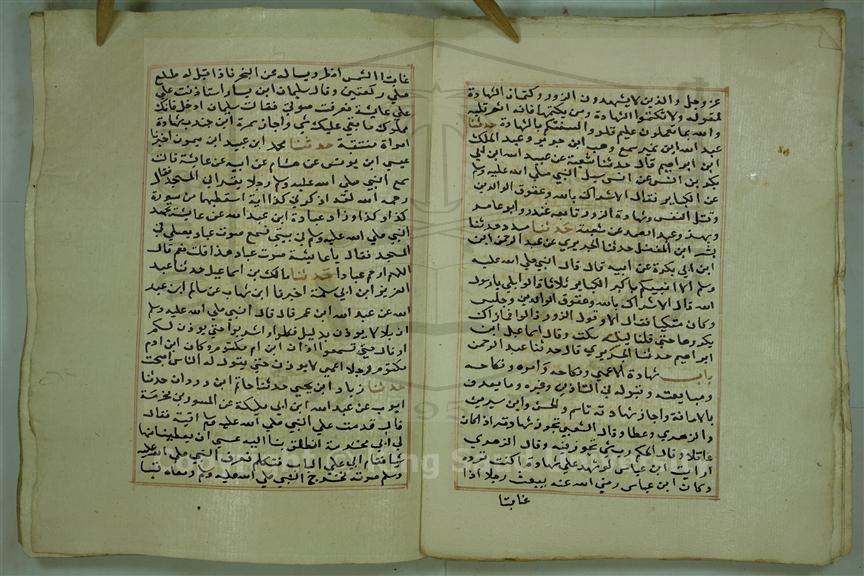 عز وجل والذين لا يشهدون الزور وكتمان الشهادة
لقوله ولا تكتموا الشهادة ومن يكتمها فانه اثم قلبه
والله بما تعملون عليم تلووا السنتكم بالشهادة حدثنا
عبد الله ابن منير سمع وهب ابن جرير وعبد الملك
ابن ابراهيم قال حدثنا شعبة عن عبيد الله ابن ابي
بكر بن انس عن انس سيل النبي صلي الله عليه وسلم
عن الكباير فقال الاشراك بالله وعقوق الوالدين
وقتل النفس وشهادة الزور تابعه غندر وابو عامر
وبهز وعبد الصمد عن شعبة حدثنا مسدد حدثنا
بشر ابن المفضل حدثنا الجريري عن عبد الرحمن ابن
ابن ابي بكرة عن ابيه قال قال النبي صلي الله عليه
وسلم الا انبيكم باكبر الكباير ثلاثا قالوا بلي يا رسول
الله قال الاشراك بالله وعقوق الوالدين وجلس
وكان متكيا فقال الا وقول الزور قال فما زال
يكررها حتي قلنا ليته سكت وقال اسماعيل ابن
ابراهيم حدثنا الجريري قال حدثنا عبد الرحمن
باب شهادة الاعمي ونكاحه وامره ونكاحه
ومبايعته وقبوله في التاذين وغيره وما يعرف
بالاصوات واجاز شهادته قاسم والحسن وابن سيرين
والزهري وعطا وقال الشعبي تجوز شهادته اذا كان
عاقلا وقال الحكم رب شي تجوز فيه وقال الزهري
ارايت ابن عباس لو شهد علي شهادة اكنت ترده
وكان ابن عباس رضي الله عنه يبعث رجلا اذا
غابتا
غابت الشمس افطر ويساله عن الفجر فاذا قيل له طلع
صلي ركعتين وقال سليمان ابن يسار استاذنت علي
علي عائشة فعرفت صوتي فقالت سليمان ادخل فانك
مملوك ما بقي عليك شي واجاز سمرة ابن جندب شهادة
امراة منتقبة حدثنا محمد ابن عبيد ابن ميمون اخبرنا
عيسي ابن يونس عن هشام عن ابيه عن عائشة قالت
سمع النبي صلي الله عليه وسلم رجلا يقرا في المسجد فقال
رحمه الله لقد اذكرني كذا اية اسقطها من سورة
كذا وكذا وزاد عبادة ابن عبد الله عن عائشة تهجد
النبي صلي الله عليه وسلم في بيتي فسمع صوت عباد يصلي في
المسجد فقال يا عائشة صوت عباد هذا قلت نعم قال
اللهم ارحم عبادا حدثنا مالك بن اسماعيل حدثنا عبد
العزيز ابن ابي سلمة اخبرنا ابن شهاب عن سالم ابن عبد
الله عن عبد الله ابن عمر قال قال النبي صلي الله عليه وسلم
ان بلالا يوذن بليل فكلوا واشربوا حتي يوذن لكم
او قال حتي تسمعوا اذان ابن ام مكتوم وكان ابن ام
مكتوم رجلا اعمي لا يوذن حتي يقول له الناس اصبحت
حدثنا زياد ابن يحيي حدثنا حاتم ابن وردان حدثنا
ايوب عن عبد الله ابن ابي مليكة عن المسور بن مخرمة
قال قدمت علي النبي صلي الله عليه وسلم اقبية فقال
لي ابي مخرمة انطلق بنا اليه عسي ان يعطينا منها
شيا فقام ابي علي الباب فتكلم فعرف النبي صلي الله عليه
وسلم صوته فخرج النبي صلي الله عليه وسلم ومعه قبا